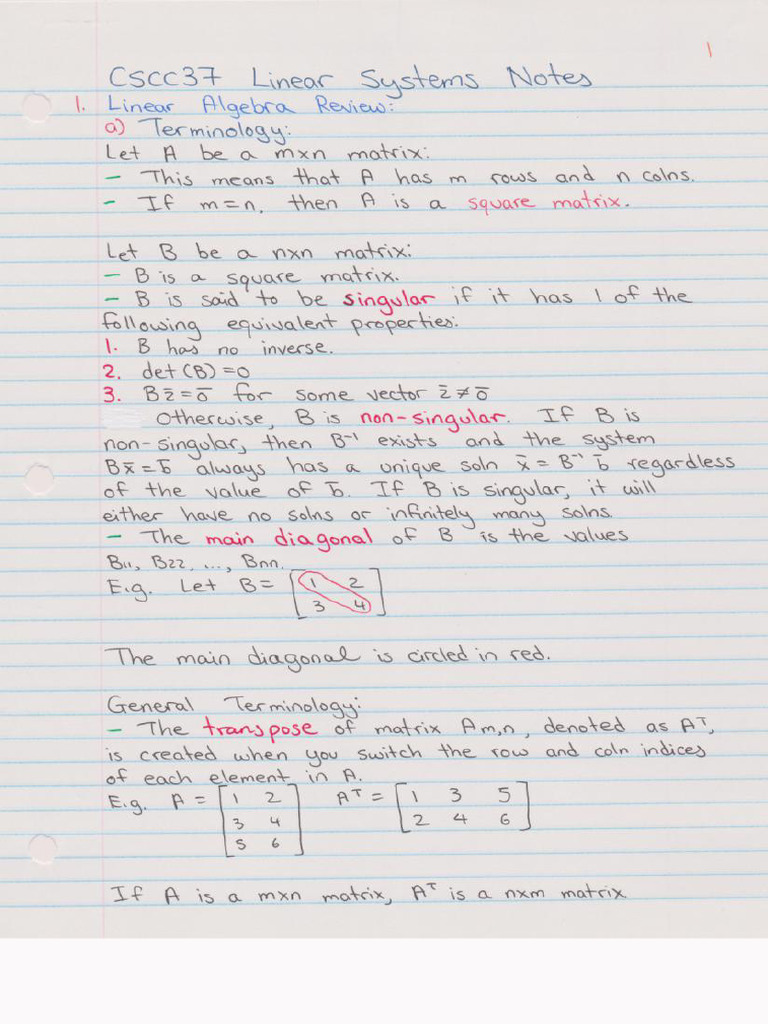 1
CSCC37 Linear Systems Notes
1. Linear Algebra Review:
a) Terminology:
Let A be a mxn matrix:
- This means that A has m rows and n colns.
- If m=n, then A is a square matrix.
Let B be a nxn matrix:
- B is a square matrix.
- B is said to be singular if it has 1 of the
following equivalent properties:
1. B has no inverse.
2. det(B)=0
3. Bz̄=ō for some vector z̄≠ō
Otherwise, B is non-singular. If B is
non-singular, then B⁻¹ exists and the system
Bx̄=b̄ always has a unique soln x̄=B⁻¹ b̄ regardless
of the value of b̄. If B is singular, it will
either have no solns or infinitely many solns.
- The main diagonal of B is the values
B11, B22, ..., Bnn.
E.g. Let B= [1 2
3 4]
The main diagonal is circled in red.
General Terminology:
- The transpose of matrix Am,n, denoted as Aᵀ,
is created when you switch the row and coln indices
of each element in A.
E.g. A = [1 2 Aᵀ = [1 3 5
3 4 2 4 6]
5 6]
If A is a mxn matrix, Aᵀ is a nxm matrix.